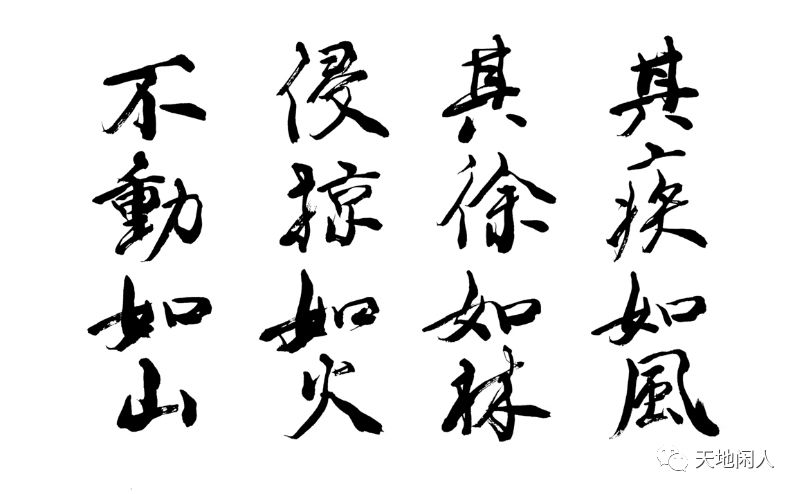 其疾如風
其徐如林
侵掠如火
不動如山
天地闲人